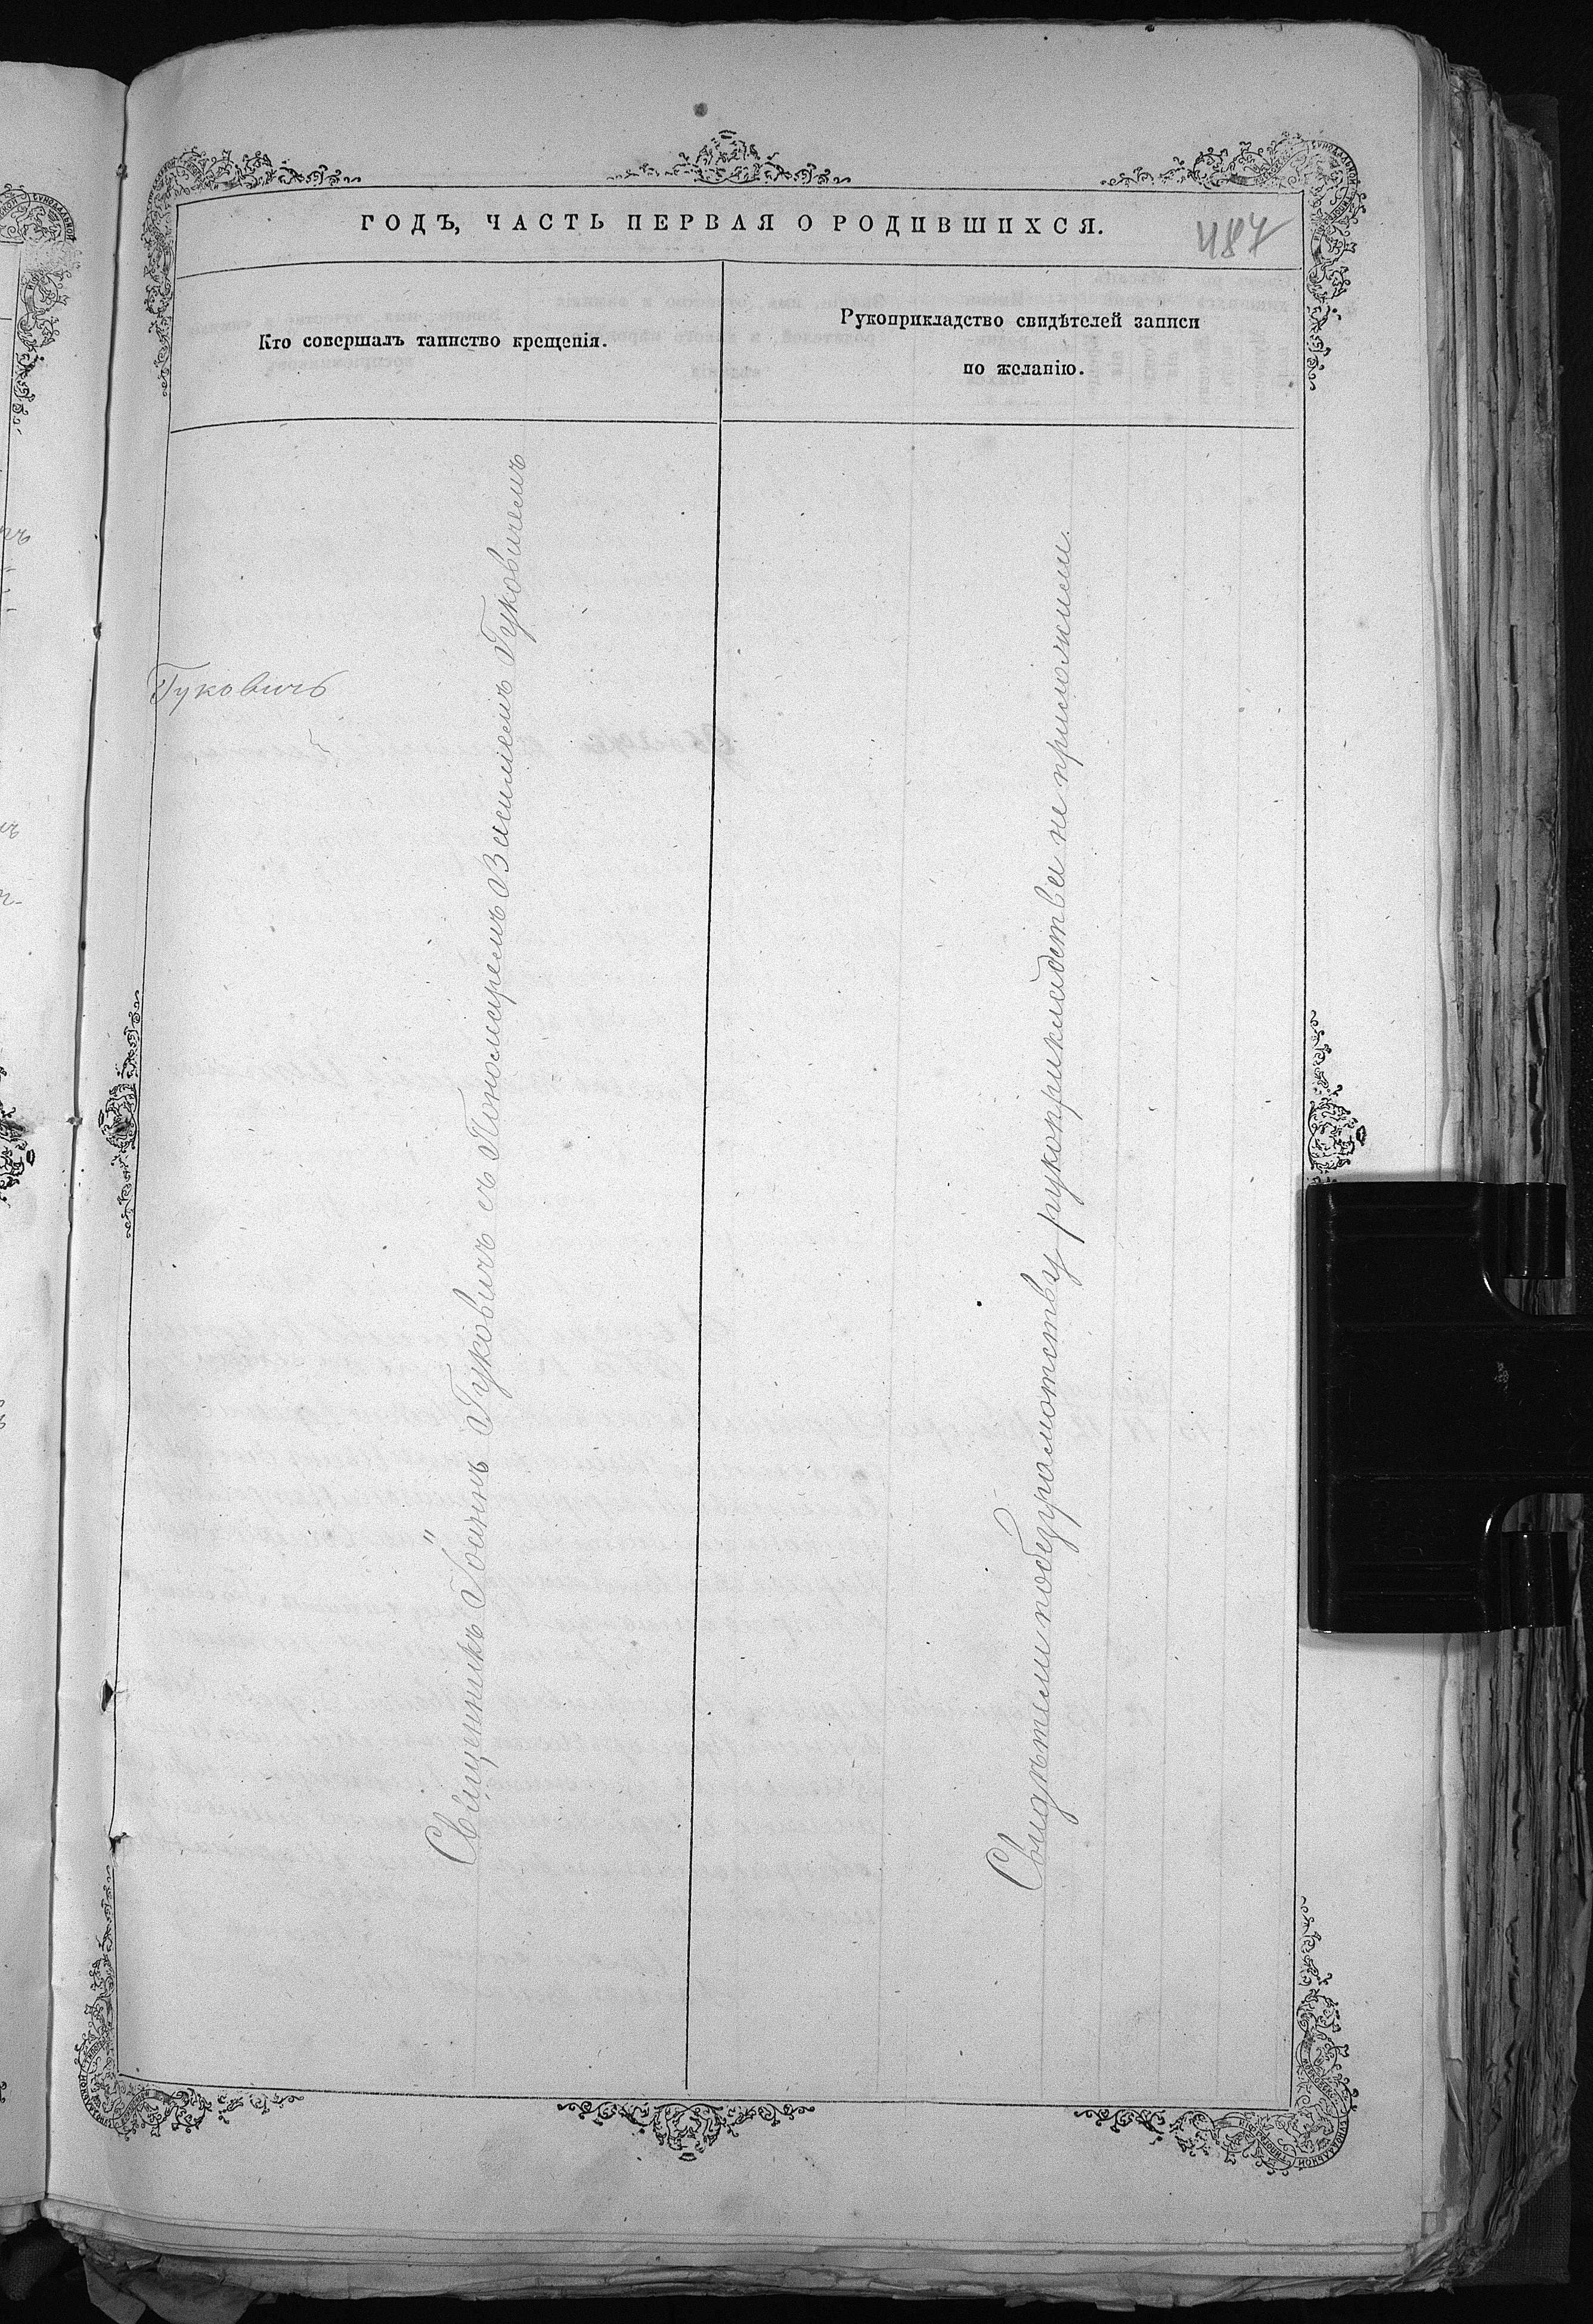 ГОДЪ, ЧАСТЬ ПЕРВАЯ О РОДИВШИХСЯ.
487
Кто совершалъ таинство крещенія.
Рукоприкладство свидѣтелей записи
по желанію.
Гуковичъ
Священникъ Іоаннъ Гуковичъ съ Пономаремъ Василіемъ Гуковичемъ
Свидѣтели по безграмотству рукоприкладства не приложили.